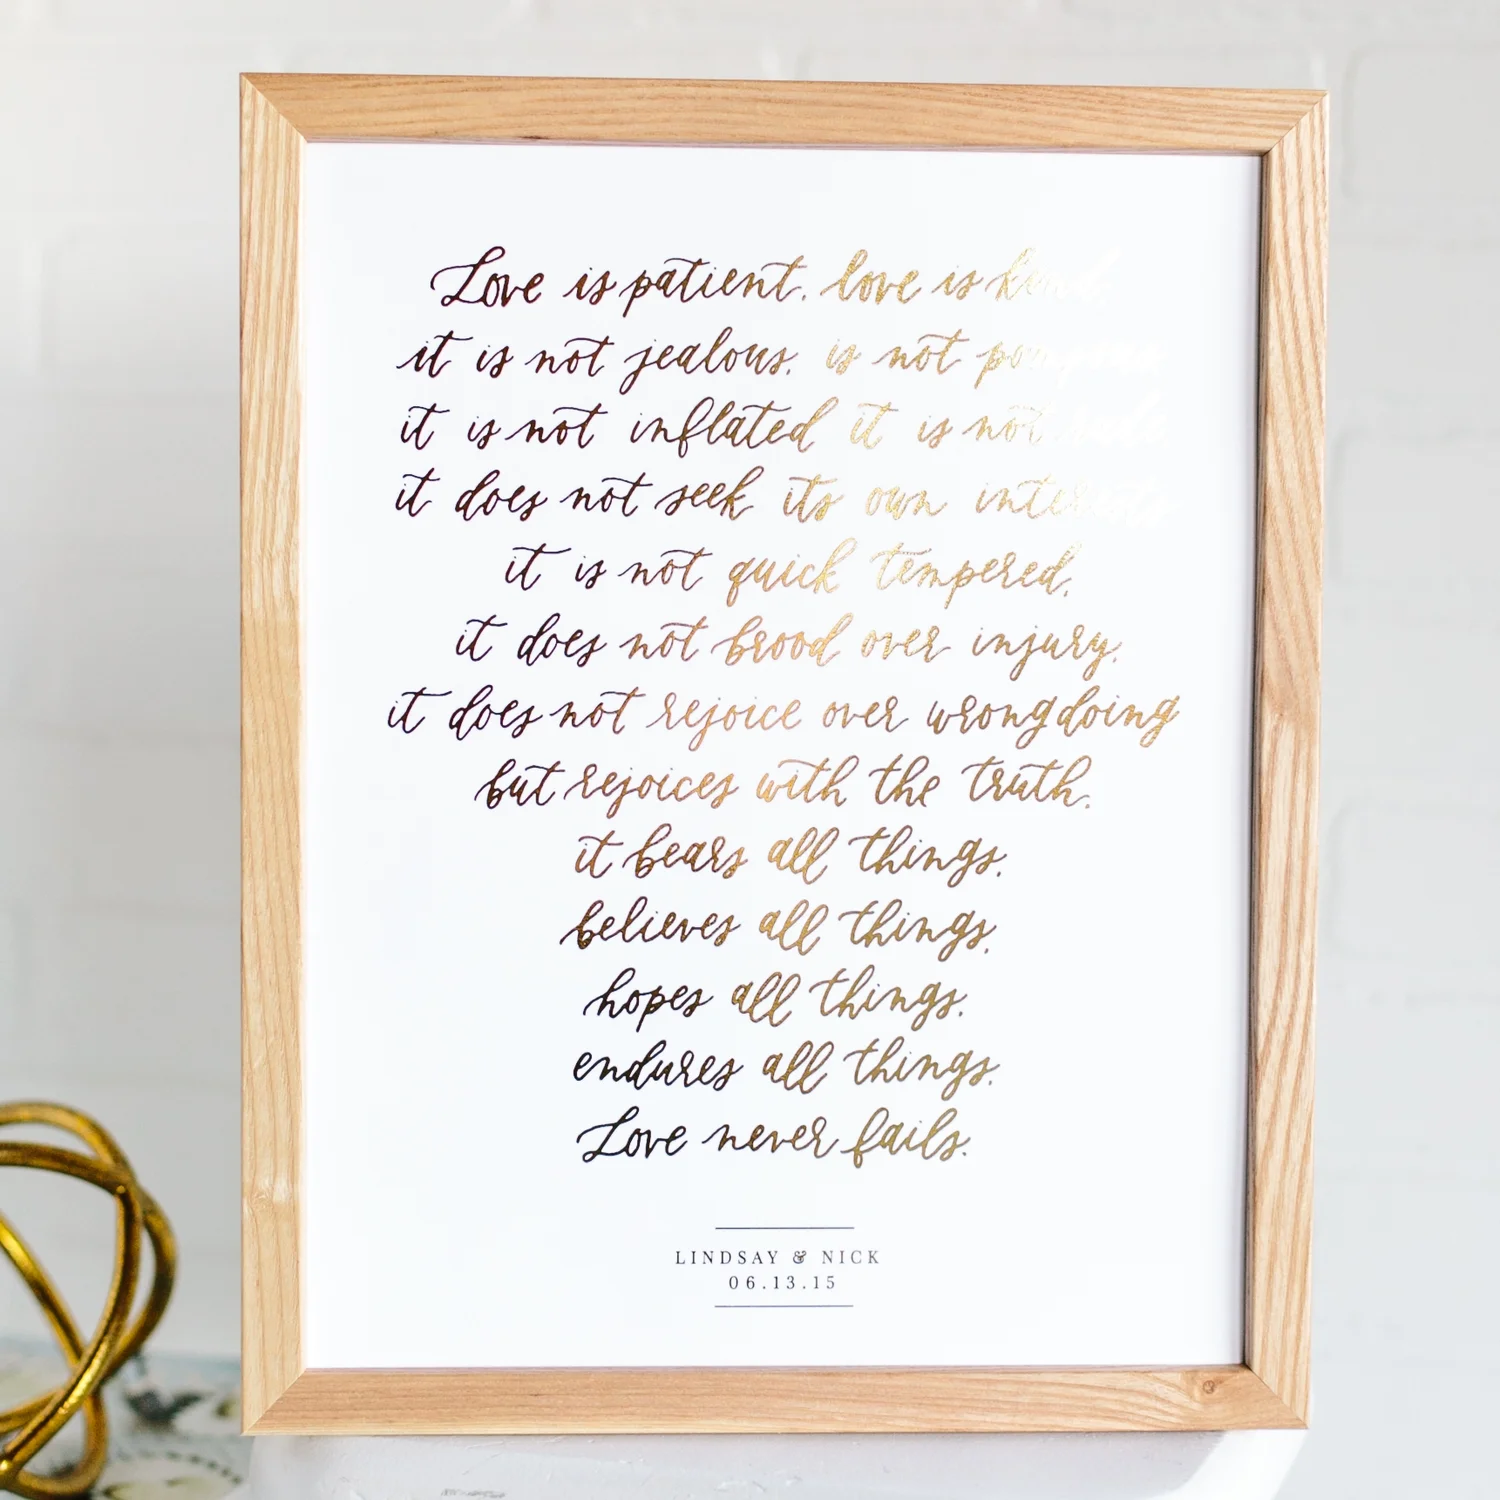 Love is patient, love is kind,
it is not jealous, is not pompous,
it is not inflated it is not rude,
it does not seek its own interests
it is not quick tempered,
it does not brood over injury,
it does not rejoice over wrongdoing
but rejoices with the truth.
it bears all things,
believes all things,
hopes all things,
endures all things.
Love never fails.
LINDSAY & NICK
06.13.15